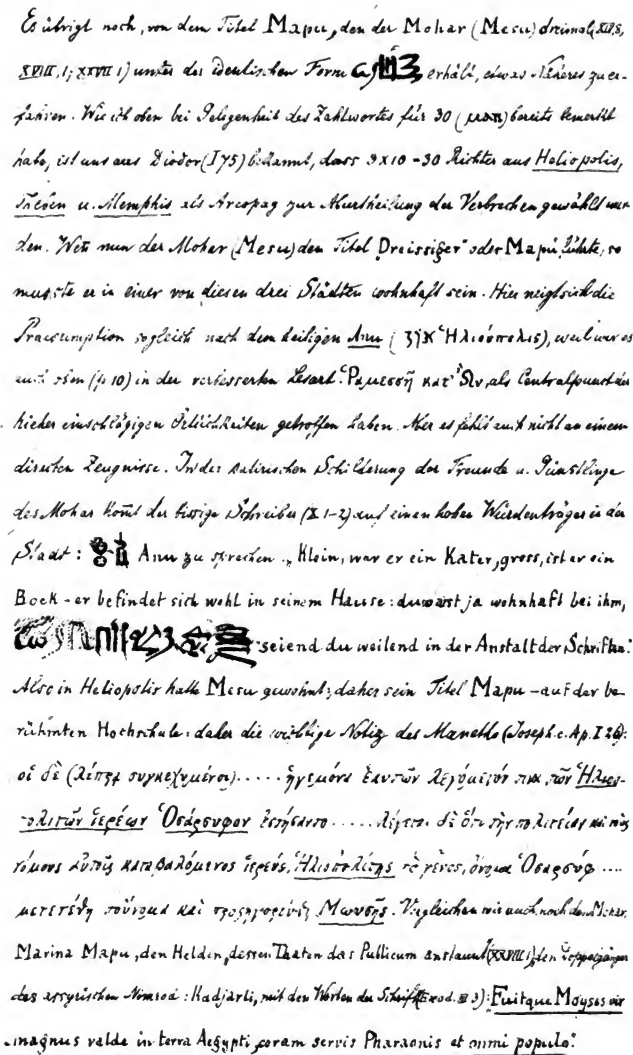 Es übrigt noch, von dem Titel Mapu, den der Mohar (Mesu) dreimal (XIV,8,
XVIII,1; XXVII 1) unter der Form erhält, etwas Näheres zu er-
fahren. Wie ich oben bei Gelegenheit des Zahlwortes für 30 (ⲙⲁⲡ) bereits bemerkt
habe, ist uns aus Diodor (I 75) bekannt, dass 3x10 - 30 Richter aus Heliopolis,
Theben u. Memphis als Areopag zur Aburtheilung der Verbrechen gewählt wur
den. Wen̄ nun der Mohar (Mesu) den Titel „Dreissiger" oder Mapu führte, so
musste er in einer von diesen drei Städten wohnhaft sein. Hier neigt sich die
Praesumption sogleich nach dem heiligen Anu ( Ἡλιούπολις), weil wir es
auch oben (p 10) in der verbesserten Lesart: Ῥαμεσσῆ κατ' Ὦν, als Centralpunct der
hieher einschlägigen Örtlichkeiten getroffen haben. Aber es fehlt auch nicht an einem
directen Zeugnisse. In der satirischen Schilderung der Freunde u. Günstlinge
des Mohar kom̄t der bissige Schreiber (X 1-2) auf einen hohen Würdenträger in der
Stadt: Anu zu sprechen „Klein, war er ein Kater, gross, ist er ein
Bock - er befindet sich wohl in seinem Hause: du warst ja wohnhaft bei ihm,
seiend du weilend in der Anstalt der Schriften."
Also in Heliopolis hatte Mesu gewohnt; daher sein Titel Mapu - auf der be-
rühmten Hochschule: daher die wichtige Notiz des Manetho (Joseph. c. Ap. I 26):
οἱ δὲ (λέπρᾳ συγκεχυμένοι)..... ἡγεμόνα ἑαυτῶν λεγόμενόν τινα τῶν Ἡλιου-
πολιτῶν ἱερέων Ὀσάρσυφον ἐστήσαντο ..... λέγεται δὲ ὅτι τὴν πολιτείαν καὶ τοὺς
νόμους αὐτοῖς καταβαλόμενος ἱερεύς, Ἡλιοπολίτης τὸ γένος, ὄνομα Ὀσαρσύφ ....
μετετέθη τοὔνομα καὶ προσηγορεύθη Μωυσῆς. Vergleichen wir auch noch den Mohar,
Marina Mapu, den Helden, dessen Thaten das Publicum anstaunt (XXVIII 1), den Doppelgänger
des assyrischen Nimrod: Kadjarti, mit den Worten der Schrift (Exod. 3): Fuitque Moyses vir
magnus valde in terra Aegypti, coram servis Pharaonis et omni populo."